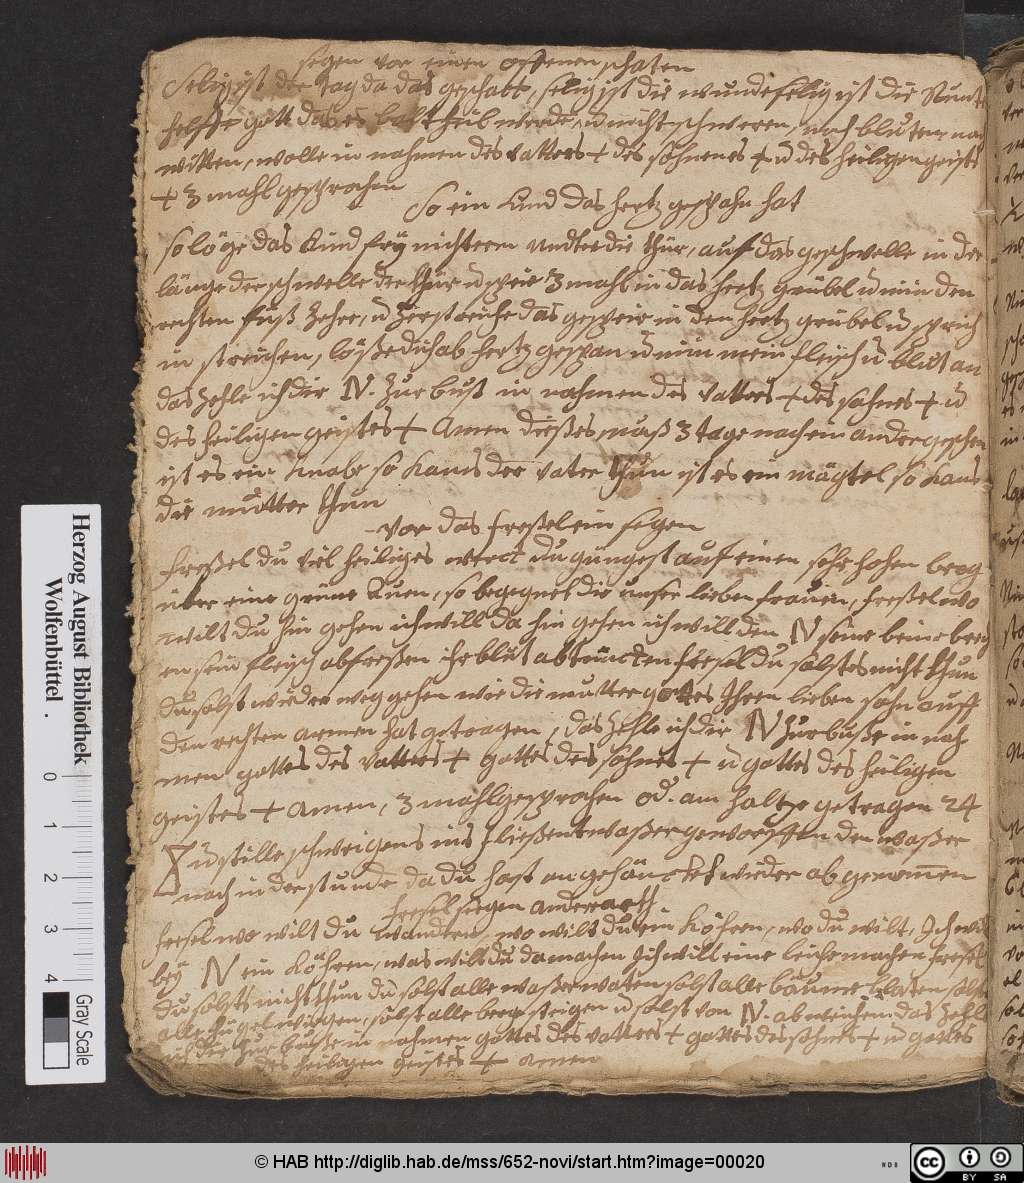 segen vor einen offenen schaten
Selig ist der tag da das geschatt, selig ist die wunde selig ist die Stunte
helffe gott das es balt heil werde, u nicht schweren, noch bluten, noch
witten, wolle in nahmen des vatters + des sohnenes + u des heiligen geistes
+ 3 mahl gesprochen
So ein Kind das hertz gespahn hat
so löge das Kind frey nichtern undter die thür, auf das geschwelle in der
länge der schwelle der thür u speie 3 mahl in das hertz grübel u nim den
rechten fuß Zehee, u Zerstreiche das gespeie in den hertz grübel u sprich
in streichen, löße dich ab hertz gespan u nim mein fleisch u blut an
das Zehle ich dir N. Zur bust in nahmen des vatters + des sohnes + u
des heiligen geistes + Amen dießes muß 3 tage nach ein ander geschen
ist es ein Knabe so kans der vater thun ist es ein mägtel so kans
die mutter thun
vor das freßel ein segen
freßel du viel heiliges werck du giengest auf einen sehr hohen berg
über eine grune Auen, so begegnet dir unser lieben frauen, freßel wo
wilt du hin gehen ich will da hin gehen ich will den N seine beine brech
en sein fleisch abfreßen ihr blut abtrincken fresel du solst es nicht thun
du solst wieder weg gehen wie die mutter gottes Ihren lieben sohn auff
den rechten armen hat getragen, das Zehle ich dir N Zur buße in nah
men gottes des vatters + gottes des sohnes + u gottes des heiligen
geistes + Amen, 3 mahl gesprochen od. am haltze getragen 24
u stilleschweigens ins fließent waßer geworffen den waßer
nach in der stunde da du hast angehäncket wieder ab genommen
fresel segen ander arth
fresel wo wilt du wandten, wo wilt du ein Köhren, wo du wilt, Ich wil
bey N ein Köhren, was wilt du da machen Ich will eine leiche machen fresel
du solst nicht thun du solst alle waßer waten solst alle bäume blaten solst
alle hügel wiegen, solst alle berge steigen u solst von N. ab weichen das Zehle
ich dir Zur buße in nahmen gottes des vatters + gottes des sohnes + u gottes
des heiligen geistes + amen
Herzog August Bibliothek
Wolfenbüttel .
0 1 2 3 4
Gray Scale
© HAB http://diglib.hab.de/mss/652-novi/start.htm?image=00020
WDB
cc
BY SA